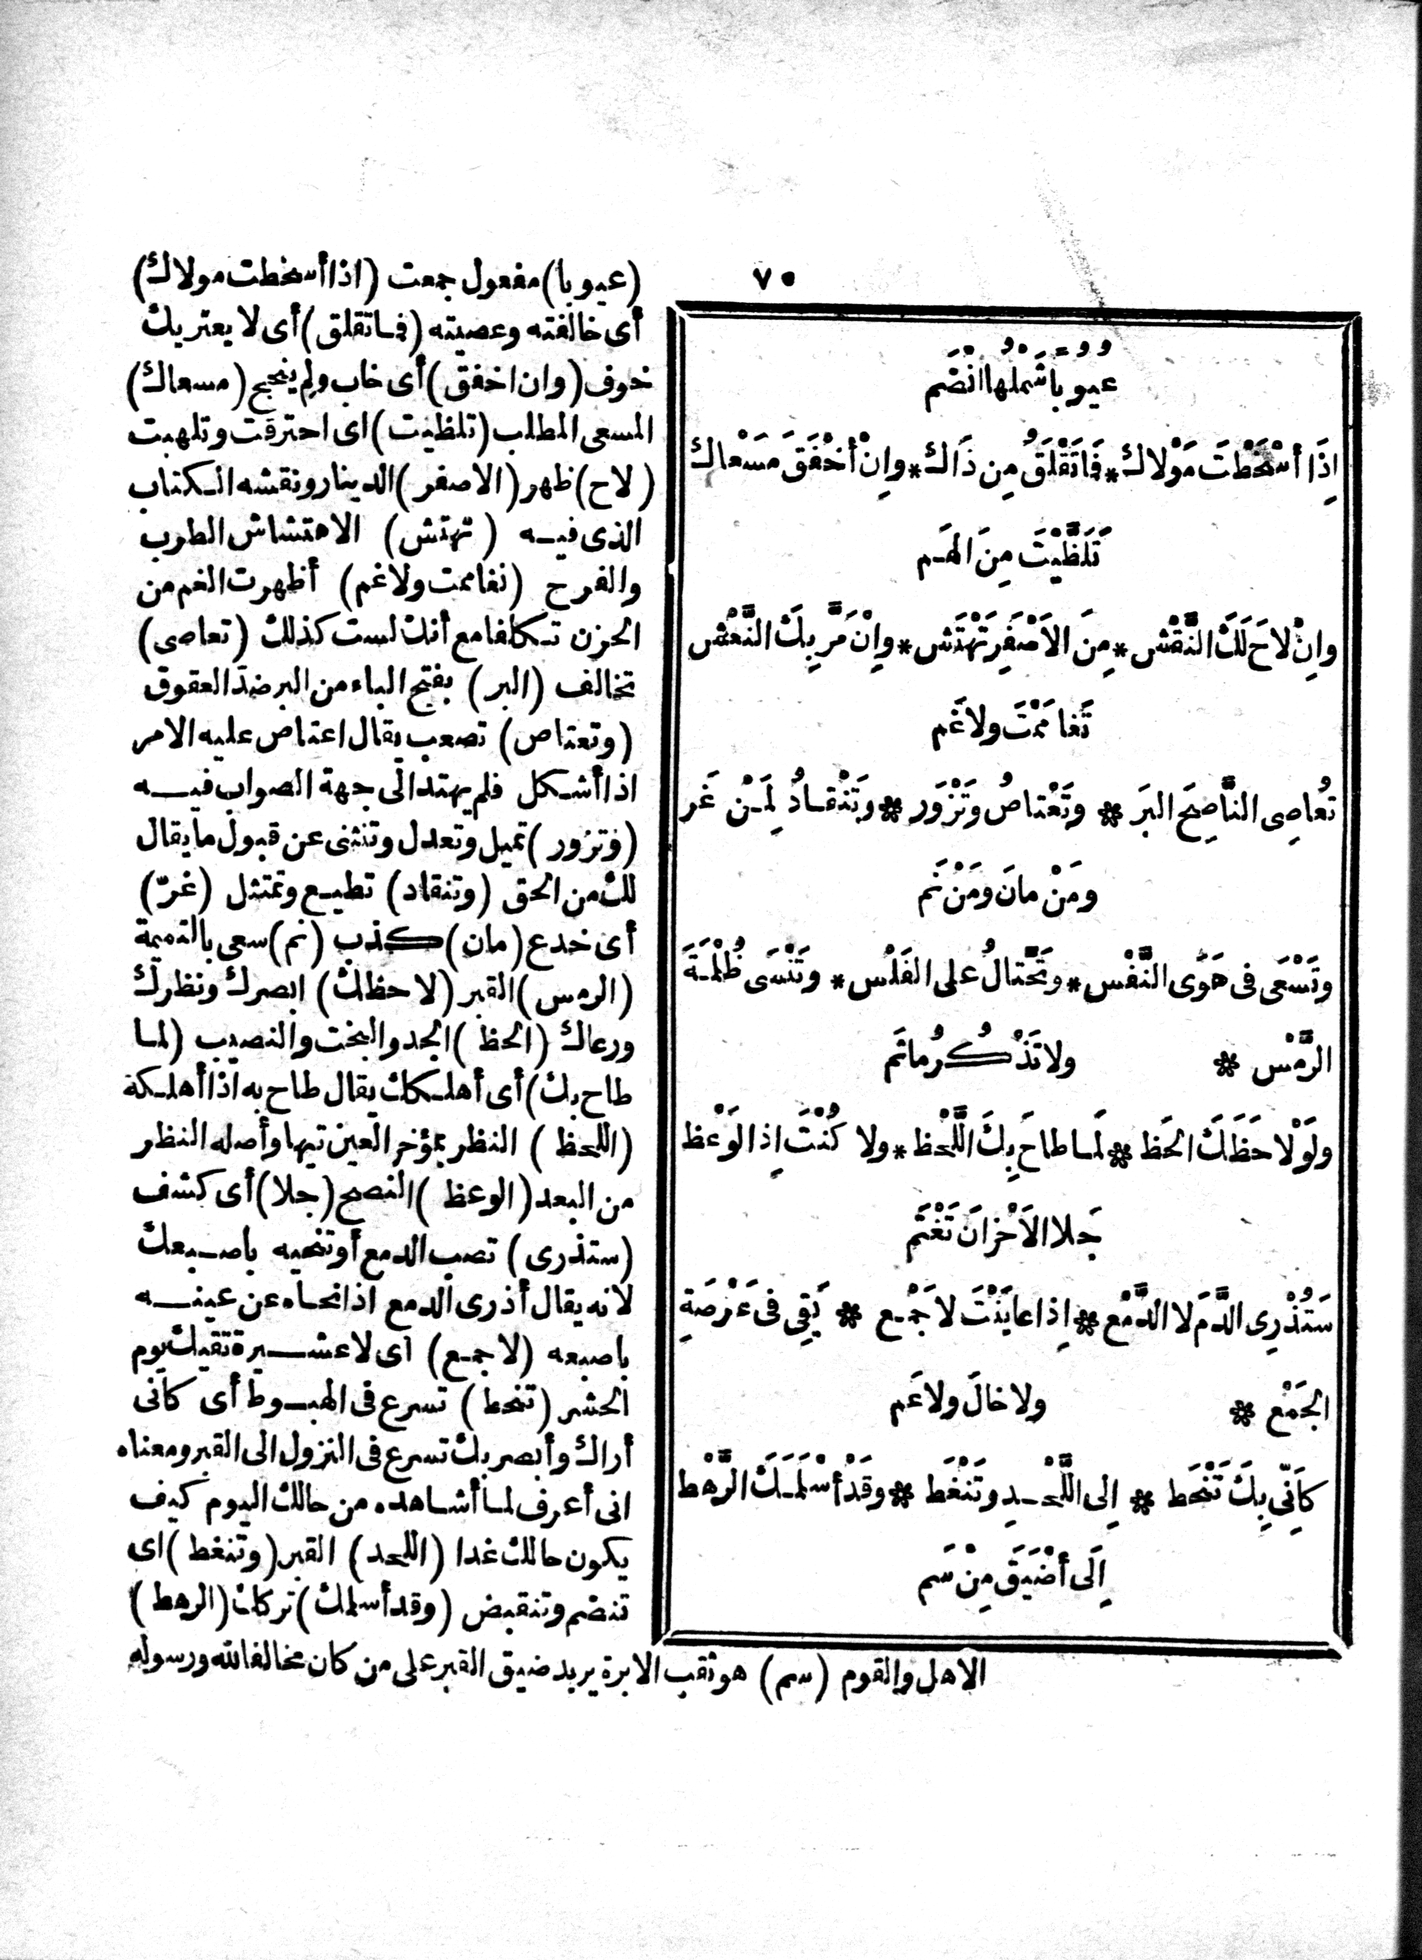 ٧٠
عُيوبًا شَمْلُها انْضَم
اِذَا أَسْخَطْتَ مَوْلاك * فَمَا تَقْلَقُ مِن ذَاك * وإِنْ أَخْفَقَ مَسْعاك
تَلَظَّيْتَ مِنَ الهَم
وإِنْ لاحَ لَكَ النَّقْش * مِنَ الاَصْفَرِ تَهْتَش * وإِنْ مَرَّ بِكَ النَّعْش
تَغامَمْتَ ولا غَم
تُعاصِى النَّاصِحَ البَر * وتَعْتاصُ وتَزْوَر * وتَنْقادُ لِمَنْ غَر
ومَنْ مانَ ومَنْ نَم
وتَسْعَى فى هَوَى النَّفْس * وتَحْتالُ على الفَلْس * وتَنْسَى ظُلْمَةَ
الرَّمْس * ولا تَذْكُرُ ما ثَم
ولَوْ لاحَظَكَ الحَظ * لَما طاحَ بِكَ اللَّحْظ * ولا كُنْتَ اِذِ الوَعْظ
جَلا الاَحْزانَ تَغْتَم
سَتُذْرِى الدَّمَ لا الدَّمْع * اِذا عايَنْتَ لا جَمْع * يَقِى فى عَرْصَةِ
الجَمْع * ولا خالَ ولا عَم
كَأَنِّى بِكَ تَنْحَط * اِلى اللَّحْدِ وتَنْغَط * وقَدْ أَسْلَمَكَ الرَّهْط
اِلَى أَضْيَقَ مِنْ سَم
(عيوبا) مفعول جمعت (اذا أسخطت مولاك)
أى خالفته وعصيته (فما تقلق) أى لا يعتريك
خوف (وان اخفق) أى خاب ولم ينجح (مسعاك)
المسعى المطلب (تلظيت) اى احترقت وتلهبت
(لاح) ظهر (الاصفر) الدينار ونقشه الكتاب
الذى فيه (تهتش) الاهتشاش الطرب
والفرح (تغاممت ولاغم) أظهرت الغم من
الحزن تكلفا مع أنك لست كذلك (تعاصى)
تخالف (البر) بفتح الباء من البر ضد العقوق
(وتعتاص) تصعب يقال اعتاص عليه الامر
اذا أشكل فلم يهتد الى جهة الصواب فيه
(وتزور) تميل وتعدل وتنثنى عن قبول ما يقال
لك من الحق (وتنقاد) تطيع وتمتثل (غرّ)
أى خدع (مان) كذب (نم) سعى بالنميمة
(الرمس) القبر (لاحظك) ابصرك ونظرك
ورعاك (الحظ) الجد والبخت والنصيب (لما
طاح بك) أى أهلكك يقال طاح به اذا أهلكه
(اللحظ) النظر بمؤخر العين تيها وأصله النظر
من البعد (الوعظ) النصح (جلا) أى كشف
(ستذرى) تصب الدمع أو تنحيه باصبعك
لانه يقال أذرى الدمع اذا نحاه عن عينه
باصبعه (لا جمع) اى لا عشيرة تقيك يوم
الحشر (تنحط) تسرع فى الهبوط أى كأنى
أراك وأبصر بك تسرع فى النزول الى القبر ومعناه
انى أعرف لما أشاهده من حالك اليوم كيف
يكون حالك غدا (اللحد) القبر (وتنغط) اى
تنضم وتنقبض (وقد أسلمك) تركك (الرهط)
الاهل والقوم (سم) هو ثقب الابرة يريد ضيق القبر على من كان مخالفا لله ورسوله